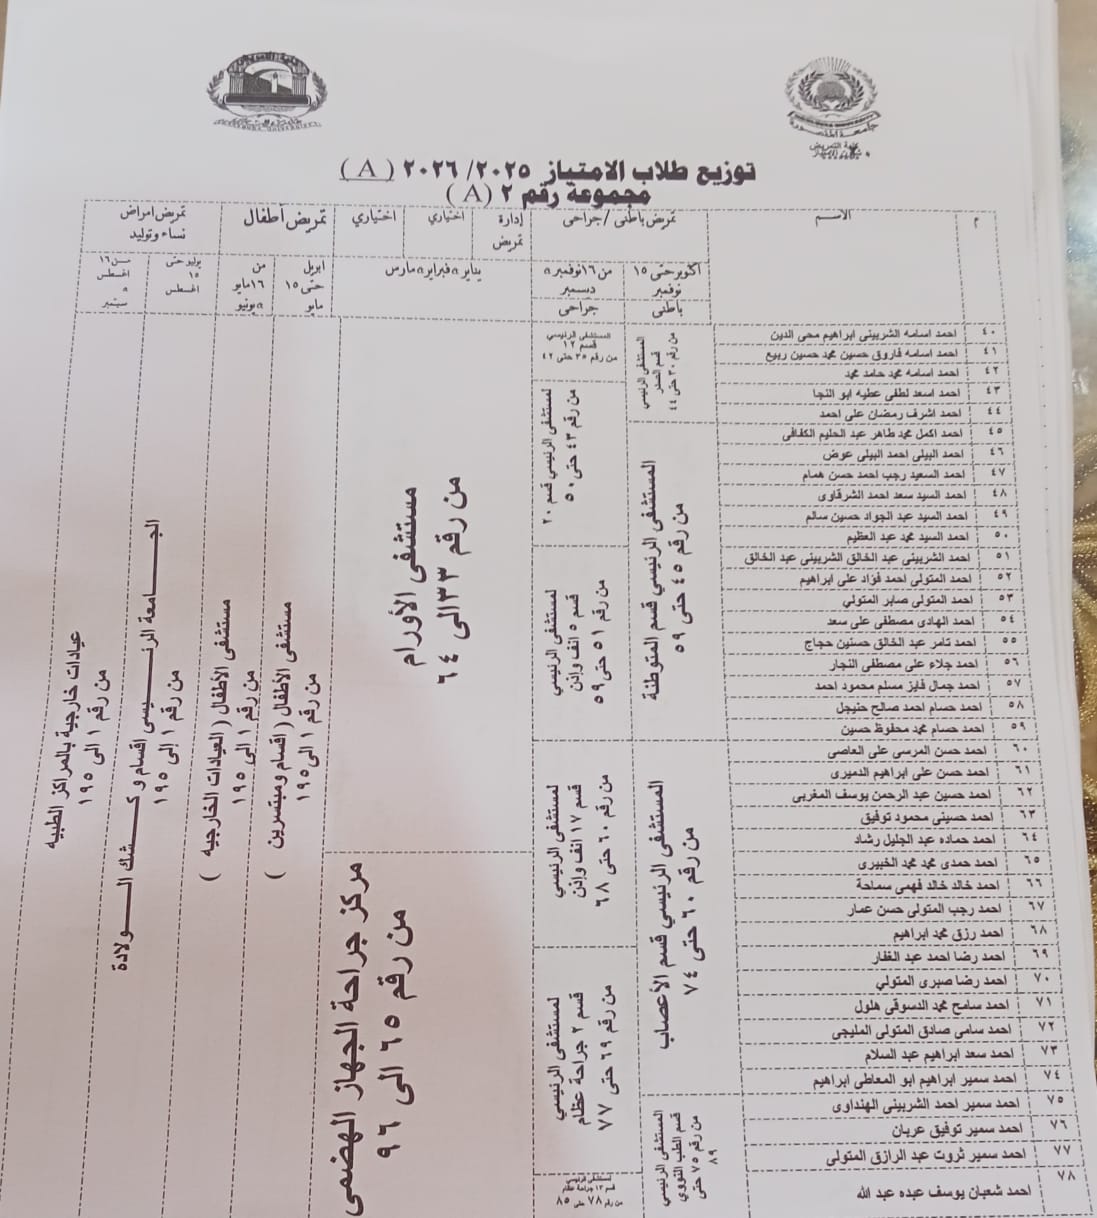 جامعة المنصورة
كلية التمريض
توزيع طلاب الامتياز ٢٠٢٥/ ٢٠٢٦ ( A )
مجموعة رقم ٢ ( A )
م
الاسم
تمريض باطنى / جراحى
إدارة تمريض
اختياري
اختياري
تمريض أطفال
تمريض امراض نساء وتوليد
أكتوبر حتى ١٥ نوفمبر
من ١٦ نوفمبر ه ديسمبر
يناير ه فبراير ه مارس
ابريل حتى ١٥ مايو
من ١٦ مايو ه يونيو
يوليو حتى ١٥ اغسطس
من ١٦ اغسطس ه سبتمبر
باطنى
جراحى
٤٠ احمد اسامه الشربينى ابراهيم محى الدين
٤١ احمد اسامه فاروق حسين محمد حسين ربيع
٤٢ احمد اسامه محمد حامد محمد
٤٣ احمد اسعد لطفى عطيه ابو النجا
٤٤ احمد اشرف رمضان على احمد
٤٥ احمد اكمل محمد طاهر عبد الحليم الكفافى
٤٦ احمد البيلى احمد البيلى عوض
٤٧ احمد السعيد رجب احمد حسن همام
٤٨ احمد السيد سعد احمد الشرقاوى
٤٩ احمد السيد عبد الجواد حسين سالم
٥٠ احمد السيد محمد عبد العظيم
٥١ احمد الشربينى عبد الخالق الشربينى عبد الخالق
٥٢ احمد المتولى احمد فؤاد على ابراهيم
٥٣ احمد المتولى صابر المتولي
٥٤ احمد الهادى مصطفى على سعد
٥٥ احمد تامر عبد الخالق حسنين حجاج
٥٦ احمد جلاء على مصطفى النجار
٥٧ احمد جمال فايز مسلم محمود احمد
٥٨ احمد حسام احمد صالح حنيجل
٥٩ احمد حسام محمد محفوظ حسين
٦٠ احمد حسن المرسي على العاصي
٦١ احمد حسن على ابراهيم الدميرى
٦٢ احمد حسين عبد الرحمن يوسف المغربى
٦٣ احمد حسيني محمود توفيق
٦٤ احمد حماده عبد الجليل رشاد
٦٥ احمد حمدى محمد محمد الخبيرى
٦٦ احمد خالد خالد فهمى سماحة
٦٧ احمد رجب المتولى حسن عمار
٦٨ احمد رزق محمد ابراهيم
٦٩ احمد رضا احمد عبد الغفار
٧٠ احمد رضا صبرى المتولي
٧١ احمد سامح محمد الدسوقى هلول
٧٢ احمد سامى صادق المتولى المليجى
٧٣ احمد سعد ابراهيم عبد السلام
٧٤ احمد سمير ابراهيم ابو المعاطى ابراهيم
٧٥ احمد سمير احمد الشربينى الهنداوى
٧٦ احمد سمير توفيق عربان
٧٧ احمد سمير ثروت عبد الرازق المتولى
٧٨ احمد شعبان يوسف عبده عبد الله
المستشفى الرئيسي
من رقم ٣٠ حتى ٤٤
المستشفى الرئيسي قسم المتوطنة
من رقم ٤٥ حتى ٥٩
المستشفى الرئيسي قسم الأعصاب
من رقم ٦٠ حتى ٧٤
المستشفى الرئيسي
قسم الطب النووي
من رقم ٧٥ حتى
٨٩
المستشفى الرئيسي
قسم ١٢
من رقم ٣٥ حتى ٤٢
لمستشفى الرئيسي قسم ٢٠
من رقم ٤٣ حتى ٥٠
لمستشفى الرئيسي
قسم ٥ انف واذن
من رقم ٥١ حتى ٥٩
لمستشفى الرئيسي
قسم ١٧ انف واذن
من رقم ٦٠ حتى ٦٨
لمستشفى الرئيسي
قسم ٢ جراحة عظام
من رقم ٦٩ حتى ٧٧
لمستشفى الرئيسي
قسم ١٣ جراحة عظام
من رقم ٧٨ حتى ٨٥
مستشفى الأورام
من رقم ٣٣ الى ٦٤
مركز جراحة الجهاز الهضمى
من رقم ٦٥ الى ٩٦
مستشفى الأطفال ( اقسام ومبتسرين )
من رقم ١ الى ١٩٥
مستشفى الأطفال ( العيادات الخارجيه )
من رقم ١ الى ١٩٥
الجامعة الرئيسى اقسام وكشك الولادة
من رقم ١ إلى ١٩٥
عيادات خارجية بالمراكز الطبيه
من رقم ١ الى ١٩٥